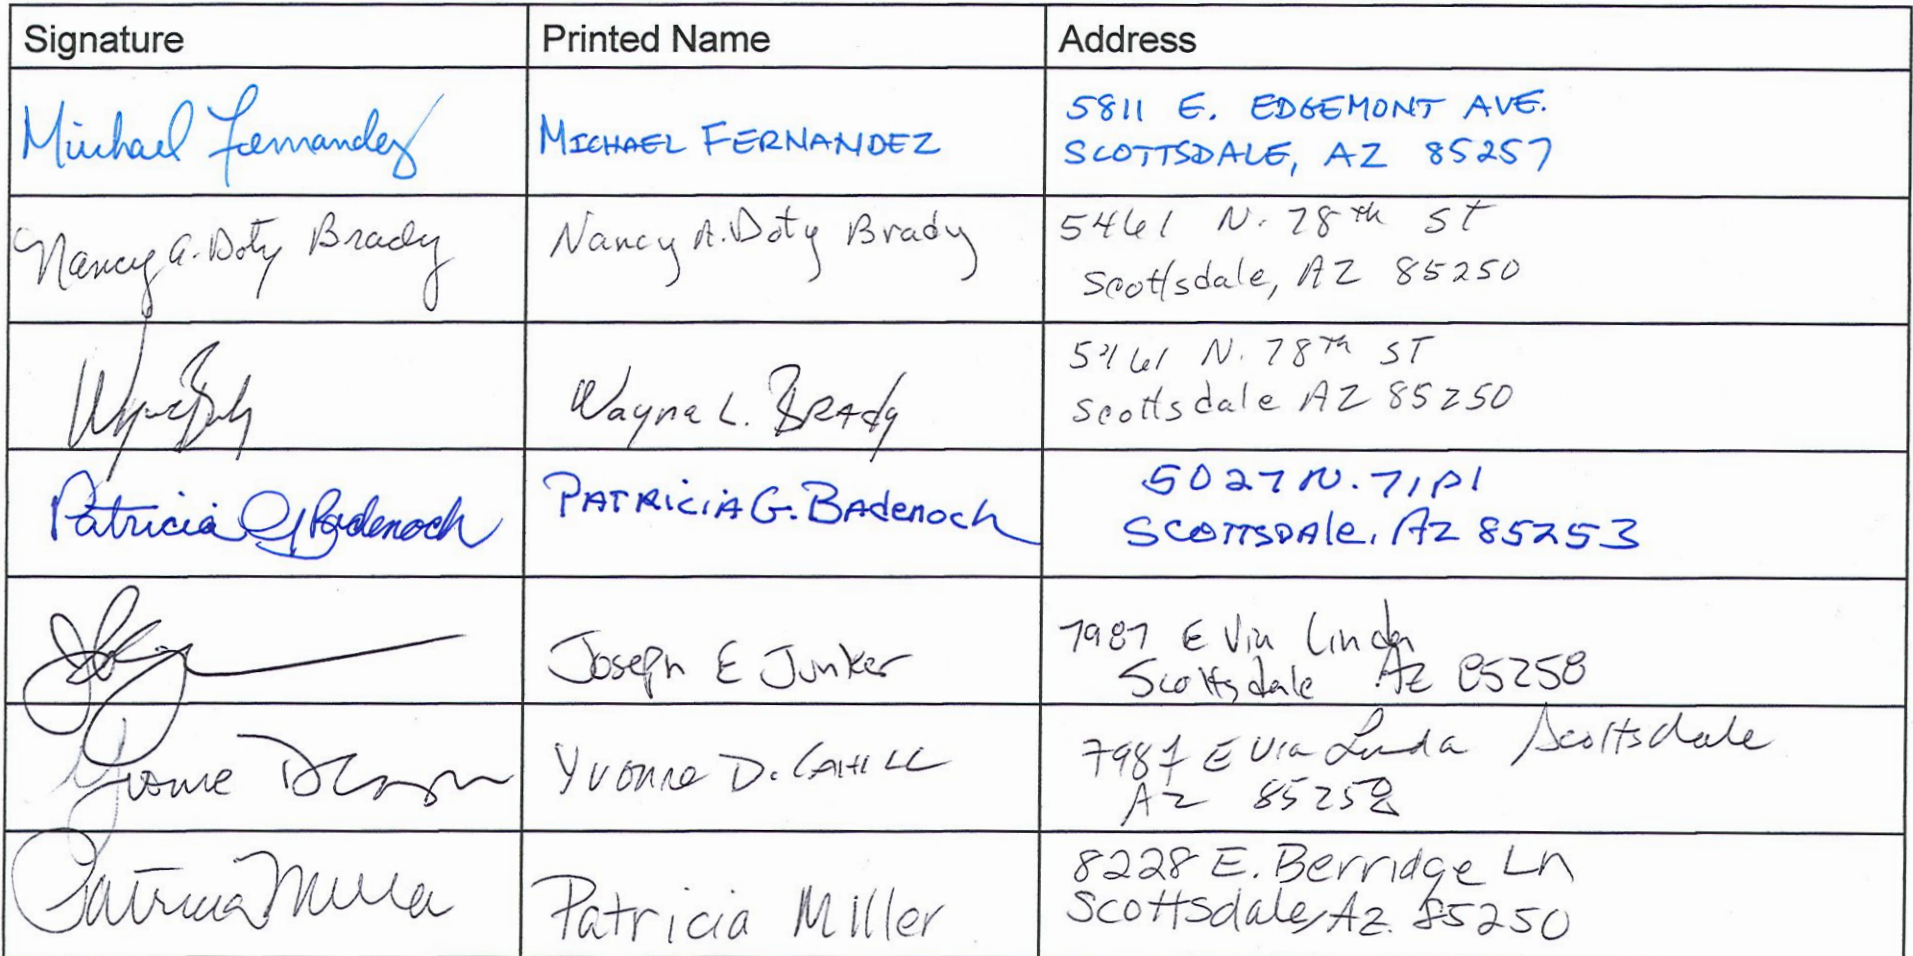 Signature Printed Name Address
Michael Fernandez MICHAEL FERNANDEZ 5811 E. EDGEMONT AVE.
SCOTTSDALE, AZ 85257
Nancy A. Doty Brady Nancy A. Doty Brady 5461 N. 78th ST
Scottsdale, AZ 85250
Wayne L. BRAdy 5461 N. 78Th ST
Scottsdale AZ 85250
Patricia G Badenoch PATRiCiA G. BAdenoch 5027 N. 71 Pl
SCOTTSDAle, AZ 85253
Joseph E Junker 7987 E Via Linda
Scottsdale Az 85258
Yvonne D Yvonne D. CAHILL 7987 E Via Linda Scottsdale
AZ 85258
Patricia Miller Patricia Miller 8228 E. Berridge Ln
Scottsdale, Az. 85250